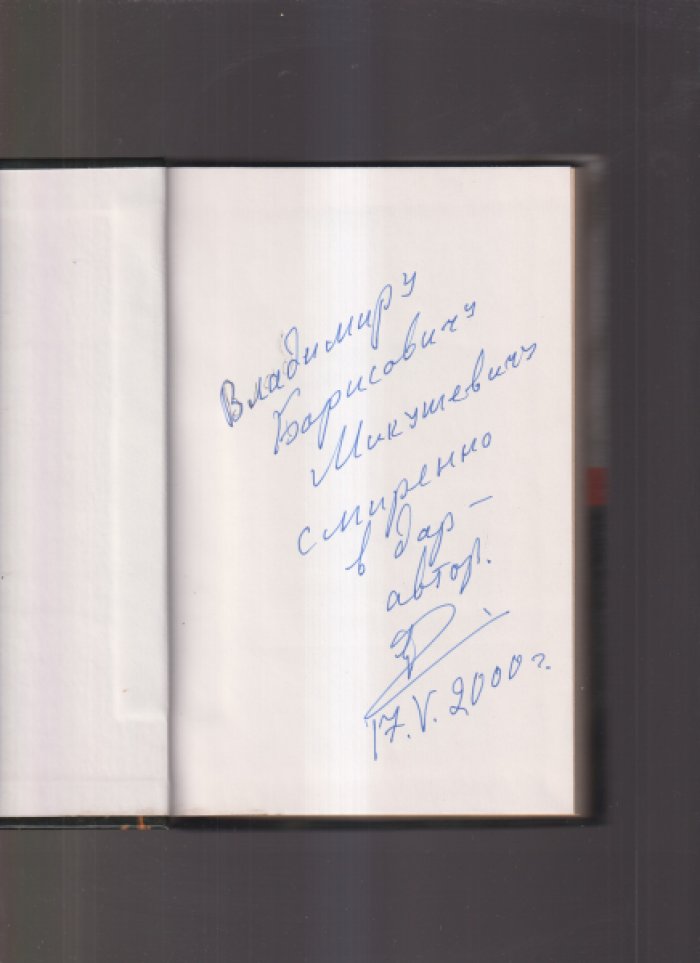 Владимиру
Борисовичу
Микушевичу
смиренно
в дар –
автор.
17.V.2000 г.